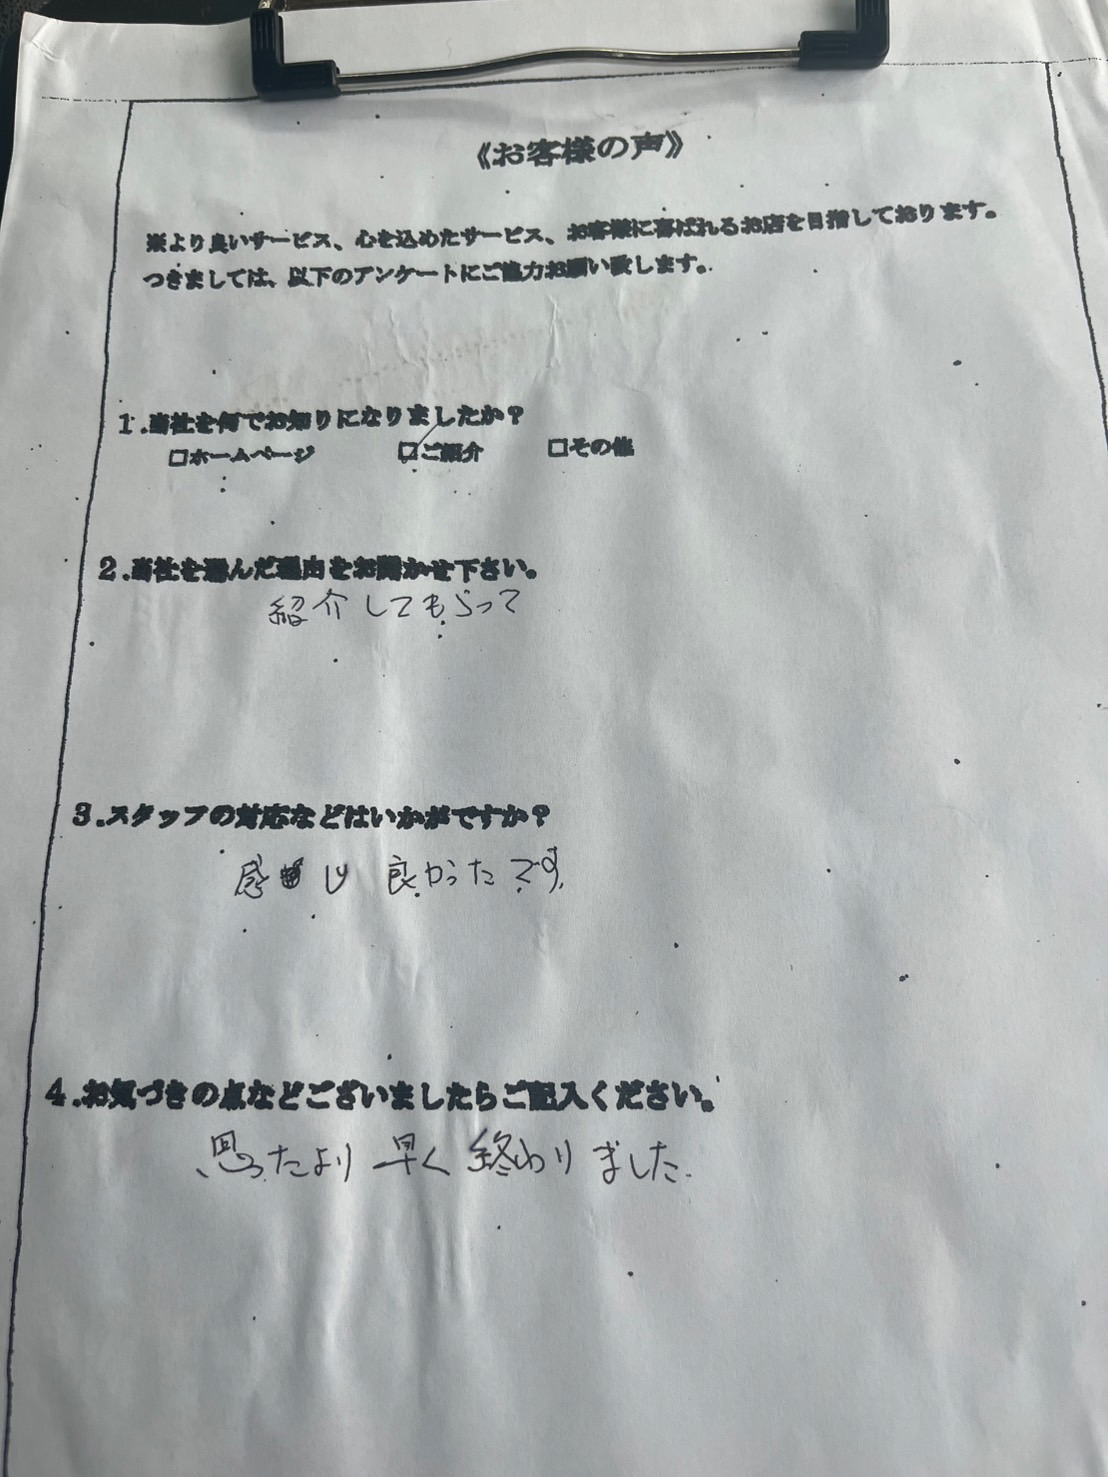 《お客様の声》
※より良いサービス、心を込めたサービス、お客様に喜ばれるお店を目指しております。
つきましては、以下のアンケートにご協力お願い致します。
1.当社を何でお知りになりましたか?
□ホームページ ☑ご紹介 □その他
2.当社を選んだ理由をお聞かせ下さい。
紹介してもらって
3.スタッフの対応などはいかがですか?
感じ 良かったです。
4.お気づきの点などございましたらご記入ください。
思ったより 早く 終わりました.